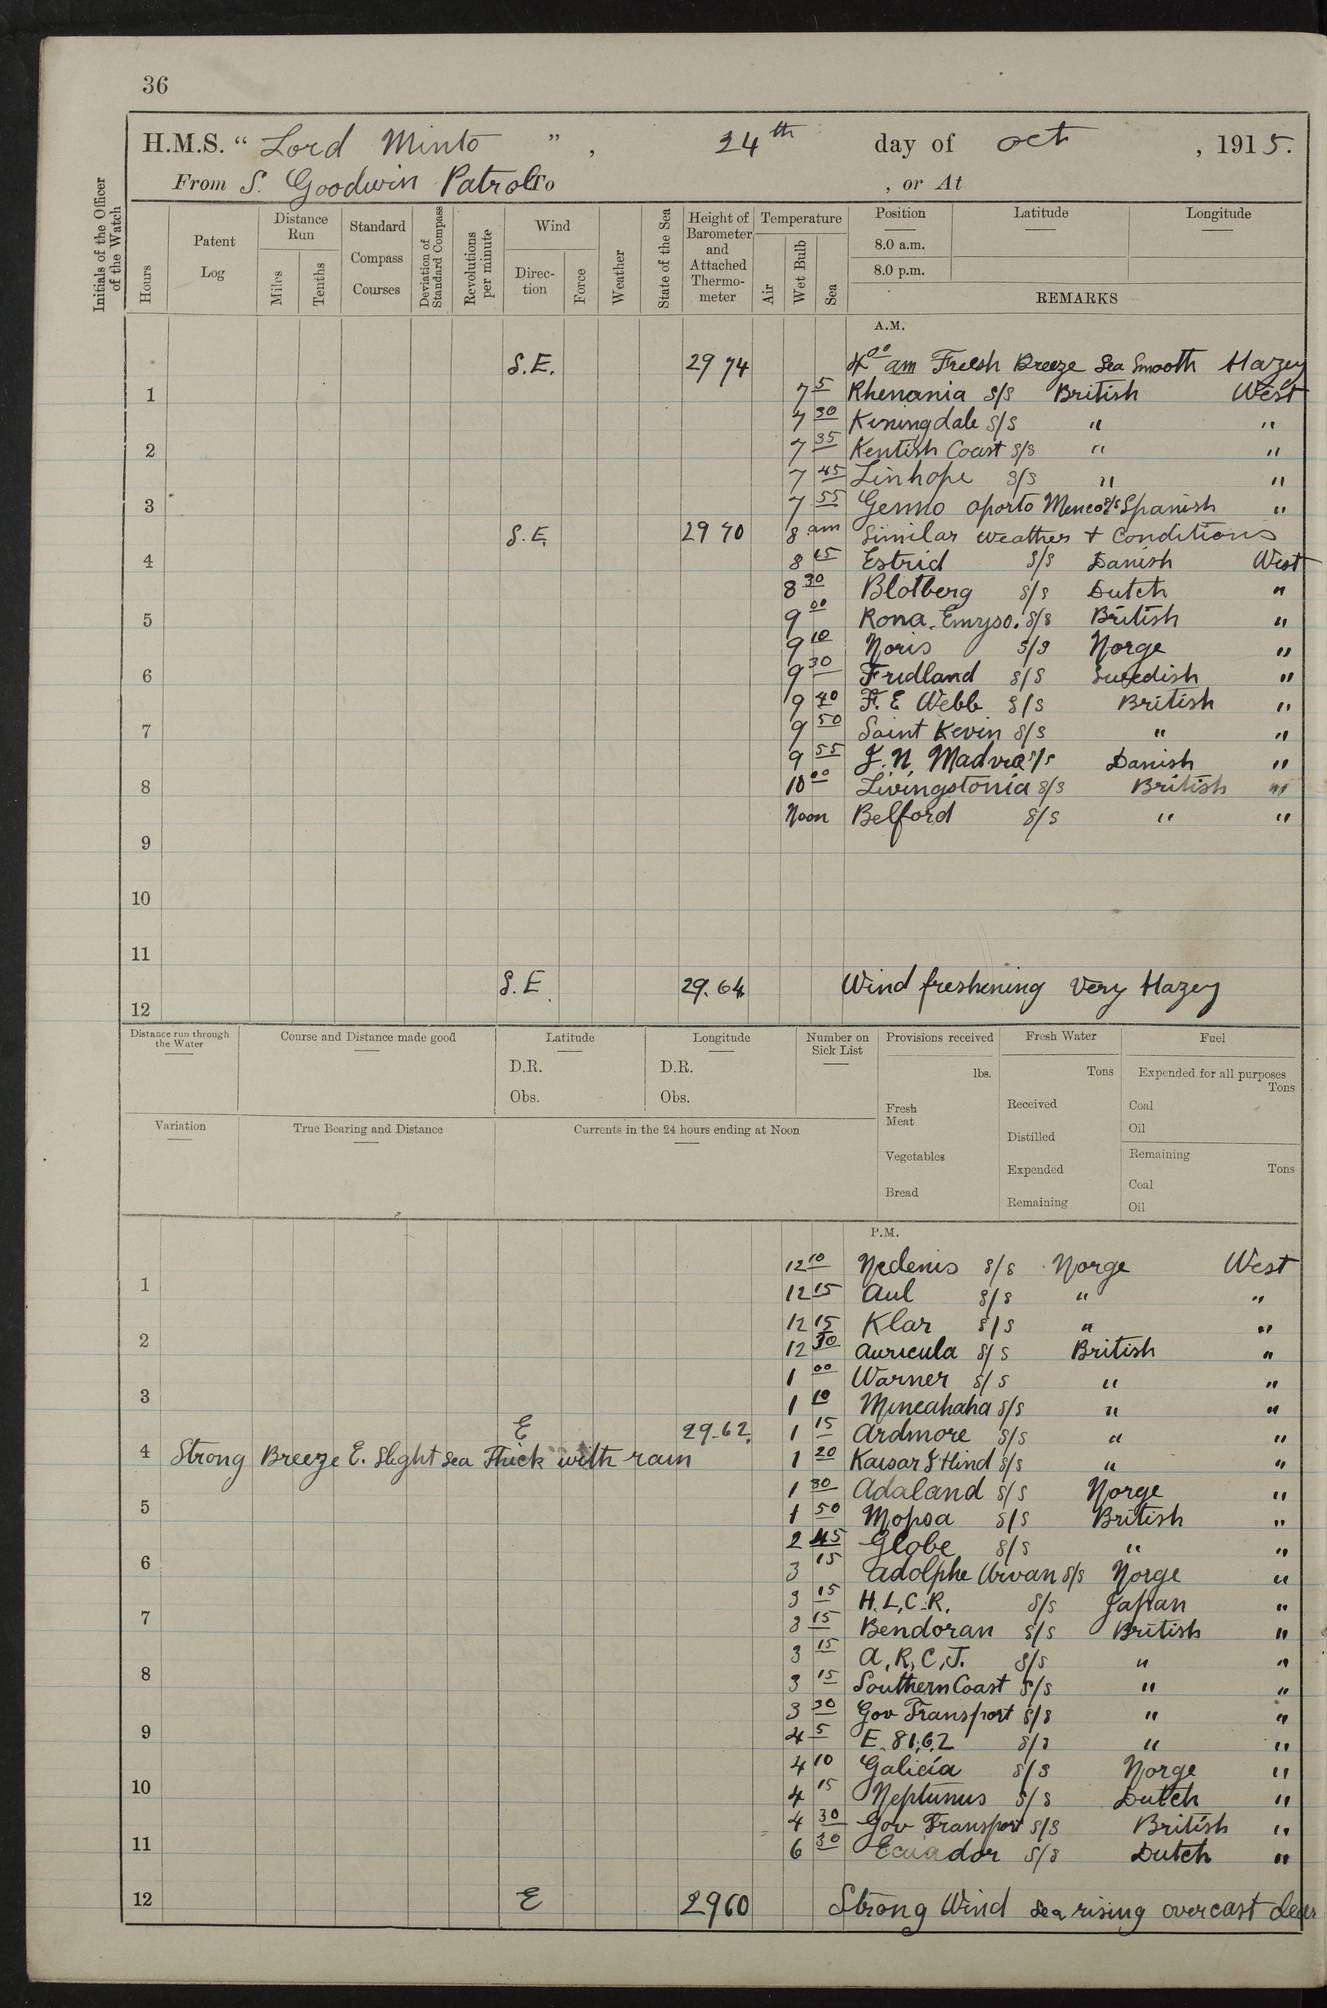 36
H.M.S. “ Lord Minto ” , 24th day of Oct , 1915.
From S. Goodwin Patrol To , or At
Initials of the Officer of the Watch
Hours
Patent Log
Distance Run
Miles
Tenths
Standard Compass Courses
Deviation of Standard Compass
Revolutions per minute
Wind
Direc-tion
Force
Weather
State of the Sea
Height of Barometer and Attached Thermo-meter
Temperature
Air
Wet Bulb
Sea
Position Latitude Longitude
8.0 a.m.
8.0 p.m.
REMARKS
A.M.
S.E. 29 74 4 00 am Fresh Breeze Sea Smooth Hazey
1 7 5 Rhenania S/S British West
7 30 Kiningdale S/S " "
2 7 35 Kentish Coast S/S " "
7 45 Linhope S/S " "
3 7 55 Genno oporto S/S Spanish "
S.E. 29 70 8 am Similar weather + Conditions
4 8 15 Estrid S/S Danish West
8 30 Blotberg S/S Dutch "
5 9 00 Rona. S/S British "
9 10 Noris S/S Norge "
6 9 30 Fridland S/S Swedish "
9 40 F. E Webb S/S British "
7 9 50 Saint Kevin S/S " "
9 55 J. N. Madvig S/S Danish "
8 10 00 Livingstonia S/S British "
Noon Belford S/S " "
9
10
11
S.E. 29.64 Wind freshening Very Hazey
12
Distance run through the Water
Course and Distance made good
Latitude
D.R.
Obs.
Longitude
D.R.
Obs.
Number on Sick List
Provisions received
lbs.
Fresh Meat
Vegetables
Bread
Fresh Water
Tons
Received
Distilled
Expended
Remaining
Fuel
Expended for all purposes
Tons
Coal
Oil
Remaining
Tons
Coal
Oil
Variation
True Bearing and Distance
Currents in the 24 hours ending at Noon
P.M.
12 10 Nedenis S/S Norge West
1 12 15 Aul S/S " "
12 15 Klar S/S " "
2 12 30 Auricula S/S British "
1 00 Warner S/S " "
3 1 10 Mineahaha S/S " "
E 29.62. 1 15 Ardmore S/S " "
4 Strong Breeze E. Slight Sea Thick with rain 1 20 Kaisar I Hind S/S " "
1 30 Adaland S/S Norge "
5 1 50 Mopsa S/S British "
2 45 Globe S/S " "
6 3 15 Adolphe Urvan S/S Norge "
3 15 H.L.C.R. S/S Japan "
7 3 15 Bendoran S/S British "
3 15 A.R.C.J. S/S " "
8 3 15 Southern Coast S/S " "
3 30 Gov Transport S/S " "
9 4 5 E.81.62 S/S " "
4 10 Galicia S/S Norge "
10 4 15 Neptunus S/S Dutch "
4 30 Gov Transport S/S British "
11 6 30 Ecuador S/S Dutch "
12 E 2960 Strong Wind Sea rising overcast clear